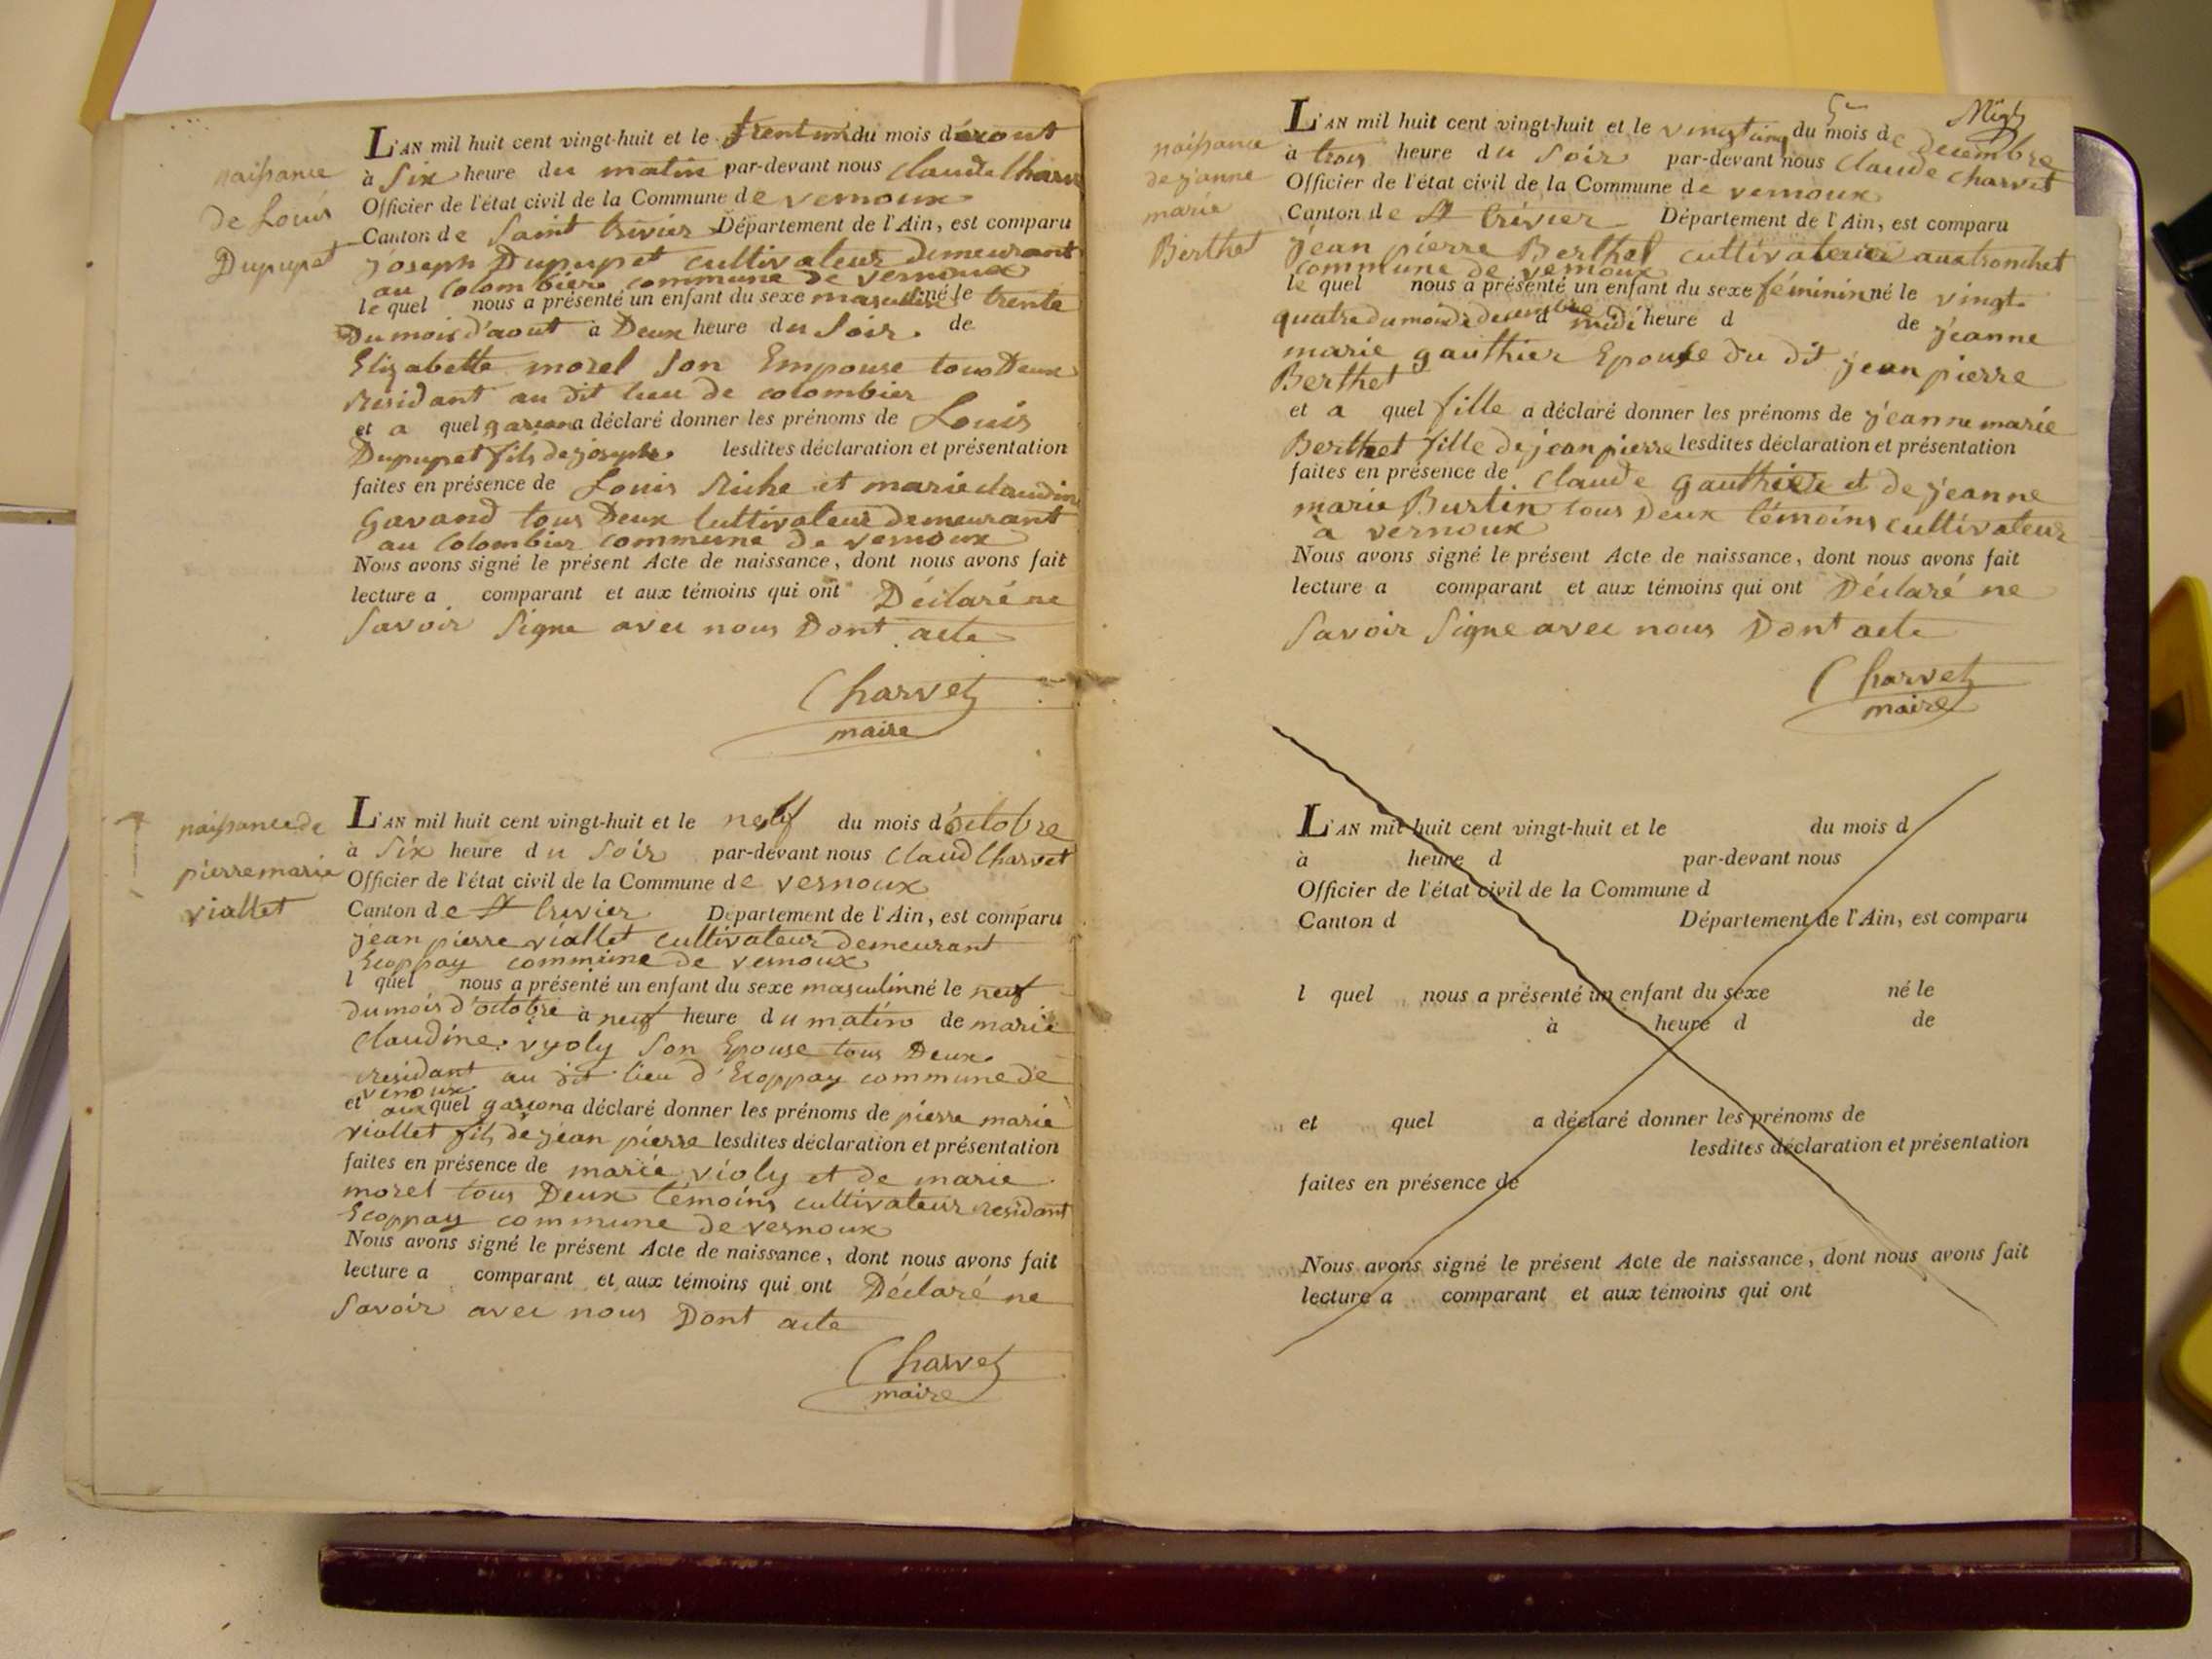 naissance
de Louis
Dupupet
L'AN mil huit cent vingt-huit et le trentun du mois d'aout
à Six heure du matin par-devant nous Claude Charvet
Officier de l'état civil de la Commune de vernoux
Canton de Saint trivier Département de l'Ain, est comparu
joseph Dupupet cultivateur demeurant
au Colombier commune de vernoux
le quel nous a présenté un enfant du sexe masculin né le trente
Du mois d'aout à Deux heure du Soir de
Elizabette morel Son Empouse tous Deux
residant au dit lieu de colombier
et a quel garçon a déclaré donner les prénoms de Louis
Dupupet fils de joseph lesdites déclaration et présentation
faites en présence de Louis Riche et marie claudine
Gavand tous Deux Cultivateur demeurant
au Colombier commune de vernoux
Nous avons signé le présent Acte de naissance, dont nous avons fait
lecture a comparant et aux témoins qui ont Déclaré ne
Savoir Signe avec nous Dont acte
Charvet
maire
naissance de
pierre marie
viallet
L'AN mil huit cent vingt-huit et le neuf du mois d'octobre
à Six heure du Soir par-devant nous Claud Charvet
Officier de l'état civil de la Commune de vernoux
Canton de St trivier Département de l'Ain, est comparu
jean pierre viallet cultivateur demeurant
Ecoppay commune de vernoux
l quel nous a présenté un enfant du sexe masculin né le neuf
du mois d'octobre à neuf heure du matin de marie
Claudine vyoly Son Epouse tous Deux
residant au dit lieu d'Ecoppay commune de
vernoux
et aux quel garçon a déclaré donner les prénoms de pierre marie
viallet fils de jean pierre lesdites déclaration et présentation
faites en présence de marie violy et de marie
morel tous Deux témoins cultivateur residant
Ecoppay commune de vernoux
Nous avons signé le présent Acte de naissance, dont nous avons fait
lecture a comparant et aux témoins qui ont Déclaré ne
Savoir avec nous Dont acte
Charvet
maire
naissance
de janne
marie
Berthet
L'AN mil huit cent vingt-huit et le vingt cinq du mois de decembre
à trois heure du Soir par-devant nous Claude Charvet
Officier de l'état civil de la Commune de vernoux
Canton de St trivier Département de l'Ain, est comparu
jean pierre Berthet cultivateur au tronchet
commune de vernoux
le quel nous a présenté un enfant du sexe féminin né le vingt
quatre du mois de decembre à midi heure d de jeanne
marie gauthier Epouse du dit jean pierre
Berthet
et a quel fille a déclaré donner les prénoms de jeanne marie
Berthet fille de jean pierre lesdites déclaration et présentation
faites en présence de Claude gauthier et de jeanne
marie Burtin tous Deux témoins cultivateur
à vernoux
Nous avons signé le présent Acte de naissance, dont nous avons fait
lecture a comparant et aux témoins qui ont Déclaré ne
Savoir Signe avec nous Dont acte
Charvet
maire
L'AN mil huit cent vingt-huit et le du mois d
à heure d par-devant nous
Officier de l'état civil de la Commune d
Canton d Département de l'Ain, est comparu
l quel nous a présenté un enfant du sexe né le
à heure d de
et quel a déclaré donner les prénoms de
lesdites déclaration et présentation
faites en présence de
Nous avons signé le présent Acte de naissance, dont nous avons fait
lecture a comparant et aux témoins qui ont